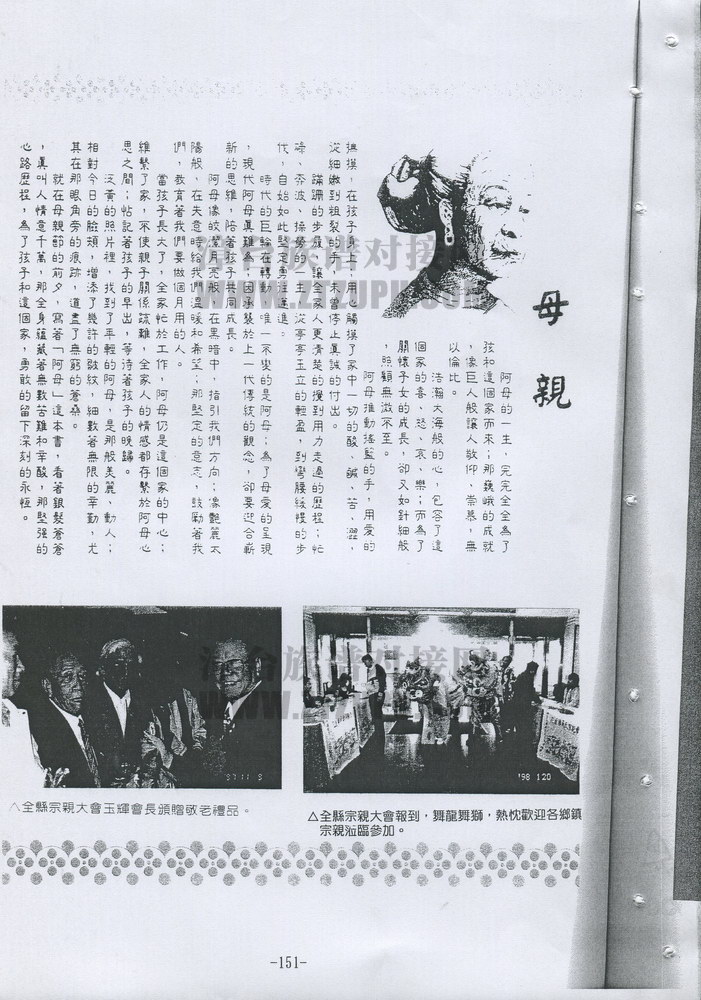 母親
阿母的一生，完完全全為了
弦和這個家而來；那巍峨的成就
，像巨人般讓人敬仰、崇慕，無
以倫比。
浩瀚大海般的心，包容了這
個家的喜、怒、哀、樂；而為了
關懷子女的成長，卻又如針細般
，照顧無微不至。
阿母推動搖籃的手，用愛的
撫摸，在孩子身上，用心觸摸了家中一切的酸、鹹、苦、澀，
從細嫩到粗裂的手，未曾停止真誠的付出。
蹣跚的步履，讓全家人更清楚的攪到用力走過的歷程；忙
碌、奔波、操勞的一生，從亭亭玉立的輕盈，到彎腰緩慢的步
代，自始如此堅定勇往邁進。
時代的巨輪在轉動，唯一不變的是阿母；為了母愛的呈現
，現代阿母真難為，因承襲於上一代傳統的觀念，卻要迎合嶄
新的思維，陪著孩子共同成長。
阿母像皎潔月亮般，在黑暗中，指引我們方向；像艷麗太
陽般，在失意時給我們溫暖和希望；那堅定的意志，鼓勵著我
們，教育著我們要做個有用的人。
當孩子長大了，全家忙於工作，阿母仍是這個家的中心；
維繫了家，不使親子關係疏離，全家人的情感都存繫於阿母心
思之間；惦記著孩子的早出，等待著孩子的晚歸。
泛黃的照片裡，找到了年輕的阿母，是那般美麗、動人；
相對今日的臉頰，增添了幾許的皺紋，細數著無限的辛勤，尤
其在那眼角旁的痕跡，道盡了無窮的蒼桑。
就在母親節的前夕，寫著「阿母」這本書，看著銀髮蒼蒼
，真叫人情意千萬，那全身蘊藏著無數苦難和辛酸，那堅強的
心路歷程，為了孩子和這個家，勇敢的留下深刻的永恆。
△全縣宗親大會玉輝會長頒贈敬老禮品。
'98 1 20
△全縣宗親大會報到，舞龍舞獅，熱忱歡迎各鄉鎮
宗親蒞臨參加。
-151-